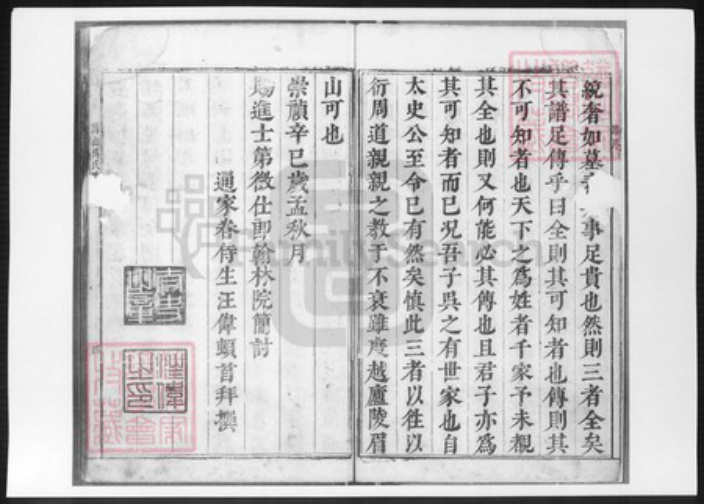 統奢如墓 事足貴也然則三者全矣
其譜足傳乎曰全則其可知者也傳則其
不可知者也天下之爲姓者千家予未覩
其全也則又何能必其傳也且君子亦爲
其可知者而已况吾子吳之有世家也自
太史公至今已有然矣慎此三者以徃以
衍周道親親之教于不衰雖度越廬陵眉
山可也
崇禎辛巳歲孟秋月
賜進士第徵仕郎翰林院簡討
通家眷侍生汪偉頓首拜撰
汪偉之印
FamilySearch